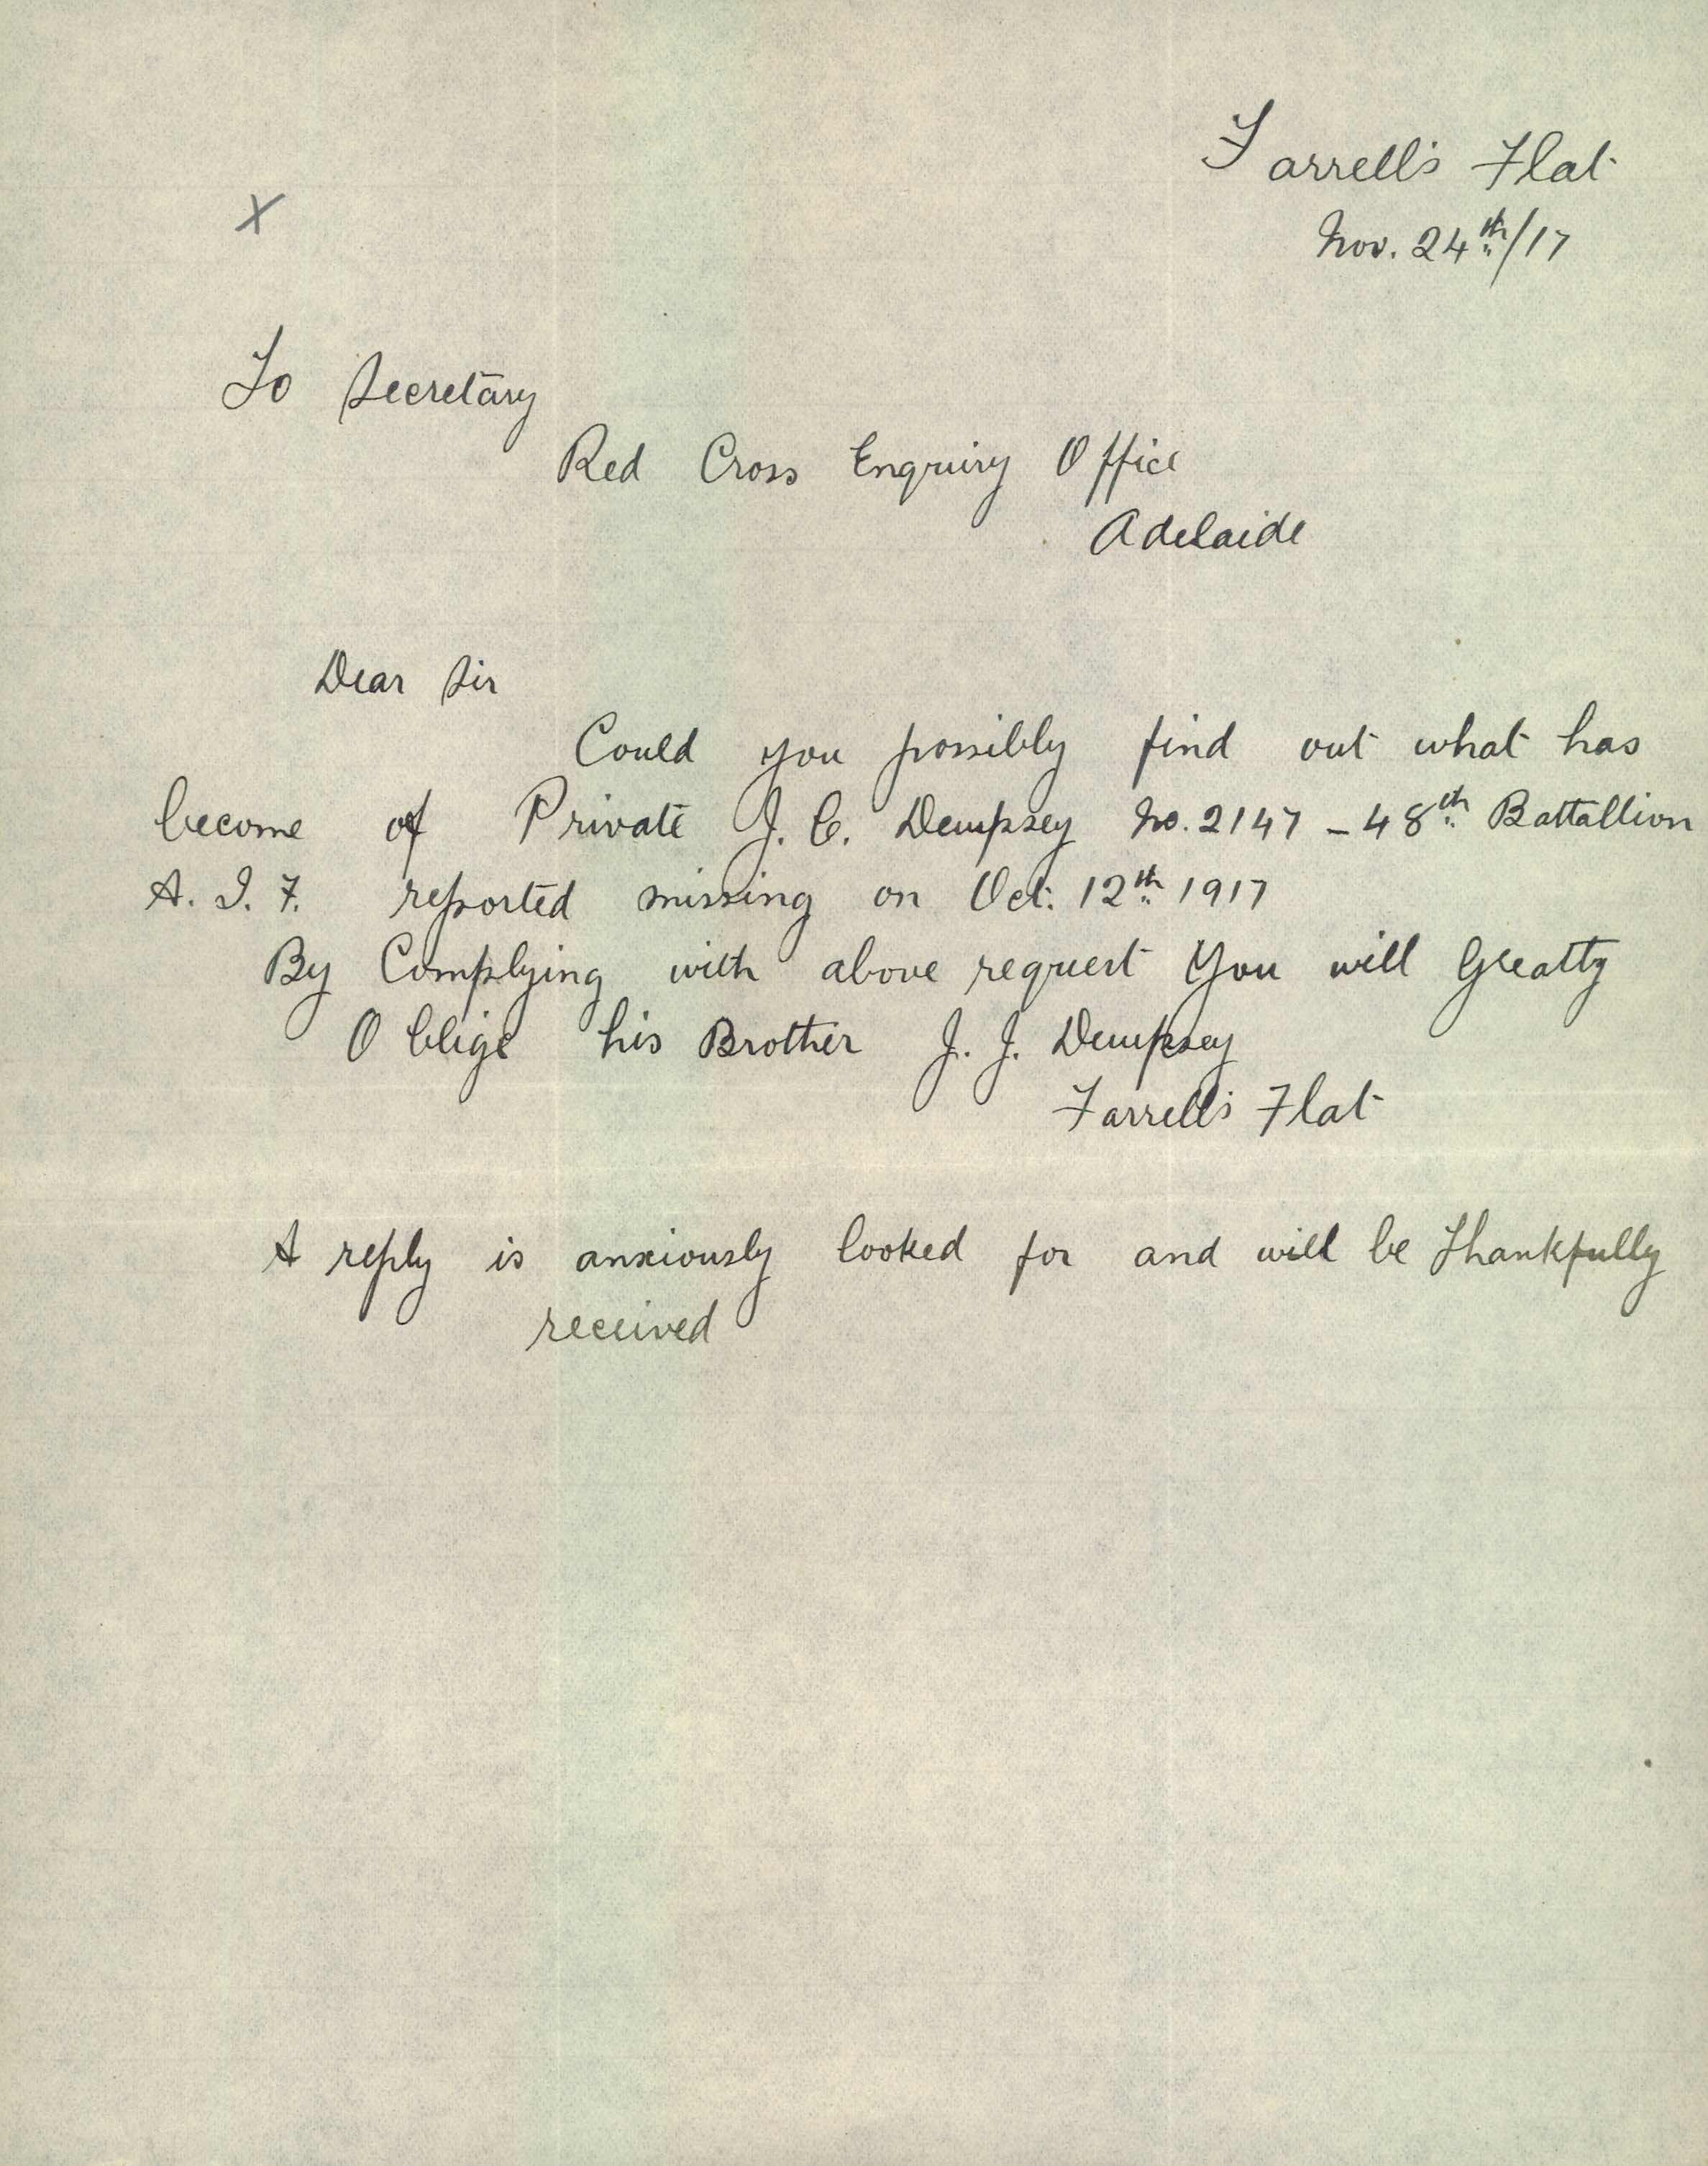 Farrell's Flat
Nov. 24th/17
X
To Secretary
Red Cross Enquiry Office
Adelaide
Dear Sir
Could you possibly find out what has
become of Private J. C. Dempsey No. 2147 - 48th Battallion
A. I. F. reported missing on Oct. 12th 1917
By Complying with above request You will Greatly
Oblige his Brother J. J. Dempsey
Farrell's Flat
A reply is anxiously looked for and will be Thankfully
received